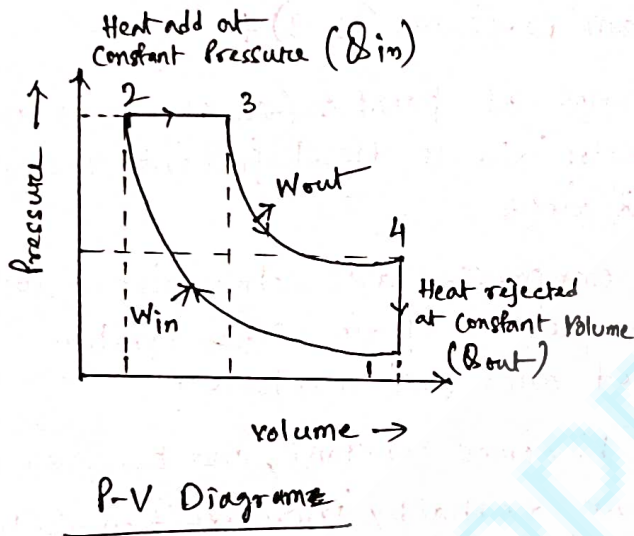 Heat add at
Constant Pressure (Qin)
2
3
Pressure →
Wout
4
Win
Heat rejected
at constant volume
(Qout)
1
volume →
P-V Diagram